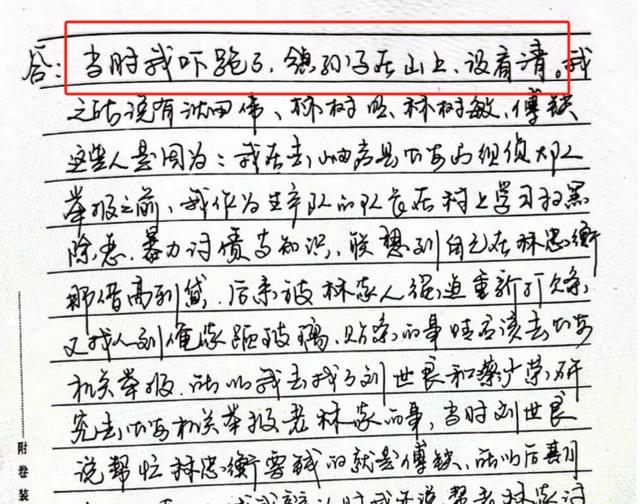 答：当时我吓跑了，领孙子在山上，没看清。我
之所以说有沈国伟、林树、林树敏、傅铁
这些人是因为：我在去岫岩县公安局侦大队
举报之前，我作为生产队的队长在村上学习扫黑
除恶、暴力讨债等知识，联想到自己在林忠衡
那借高利贷，后来被林家人强迫重新打欠条，
又找人到俺家砸玻璃、贴条的事情应该去公安
机关举报，所以我去找了刘世良和蔡少荣研
究去公安机关举报老林家的事，当时刘世良
说帮忙林忠衡要钱的就是傅铁，所以后期
附卷装